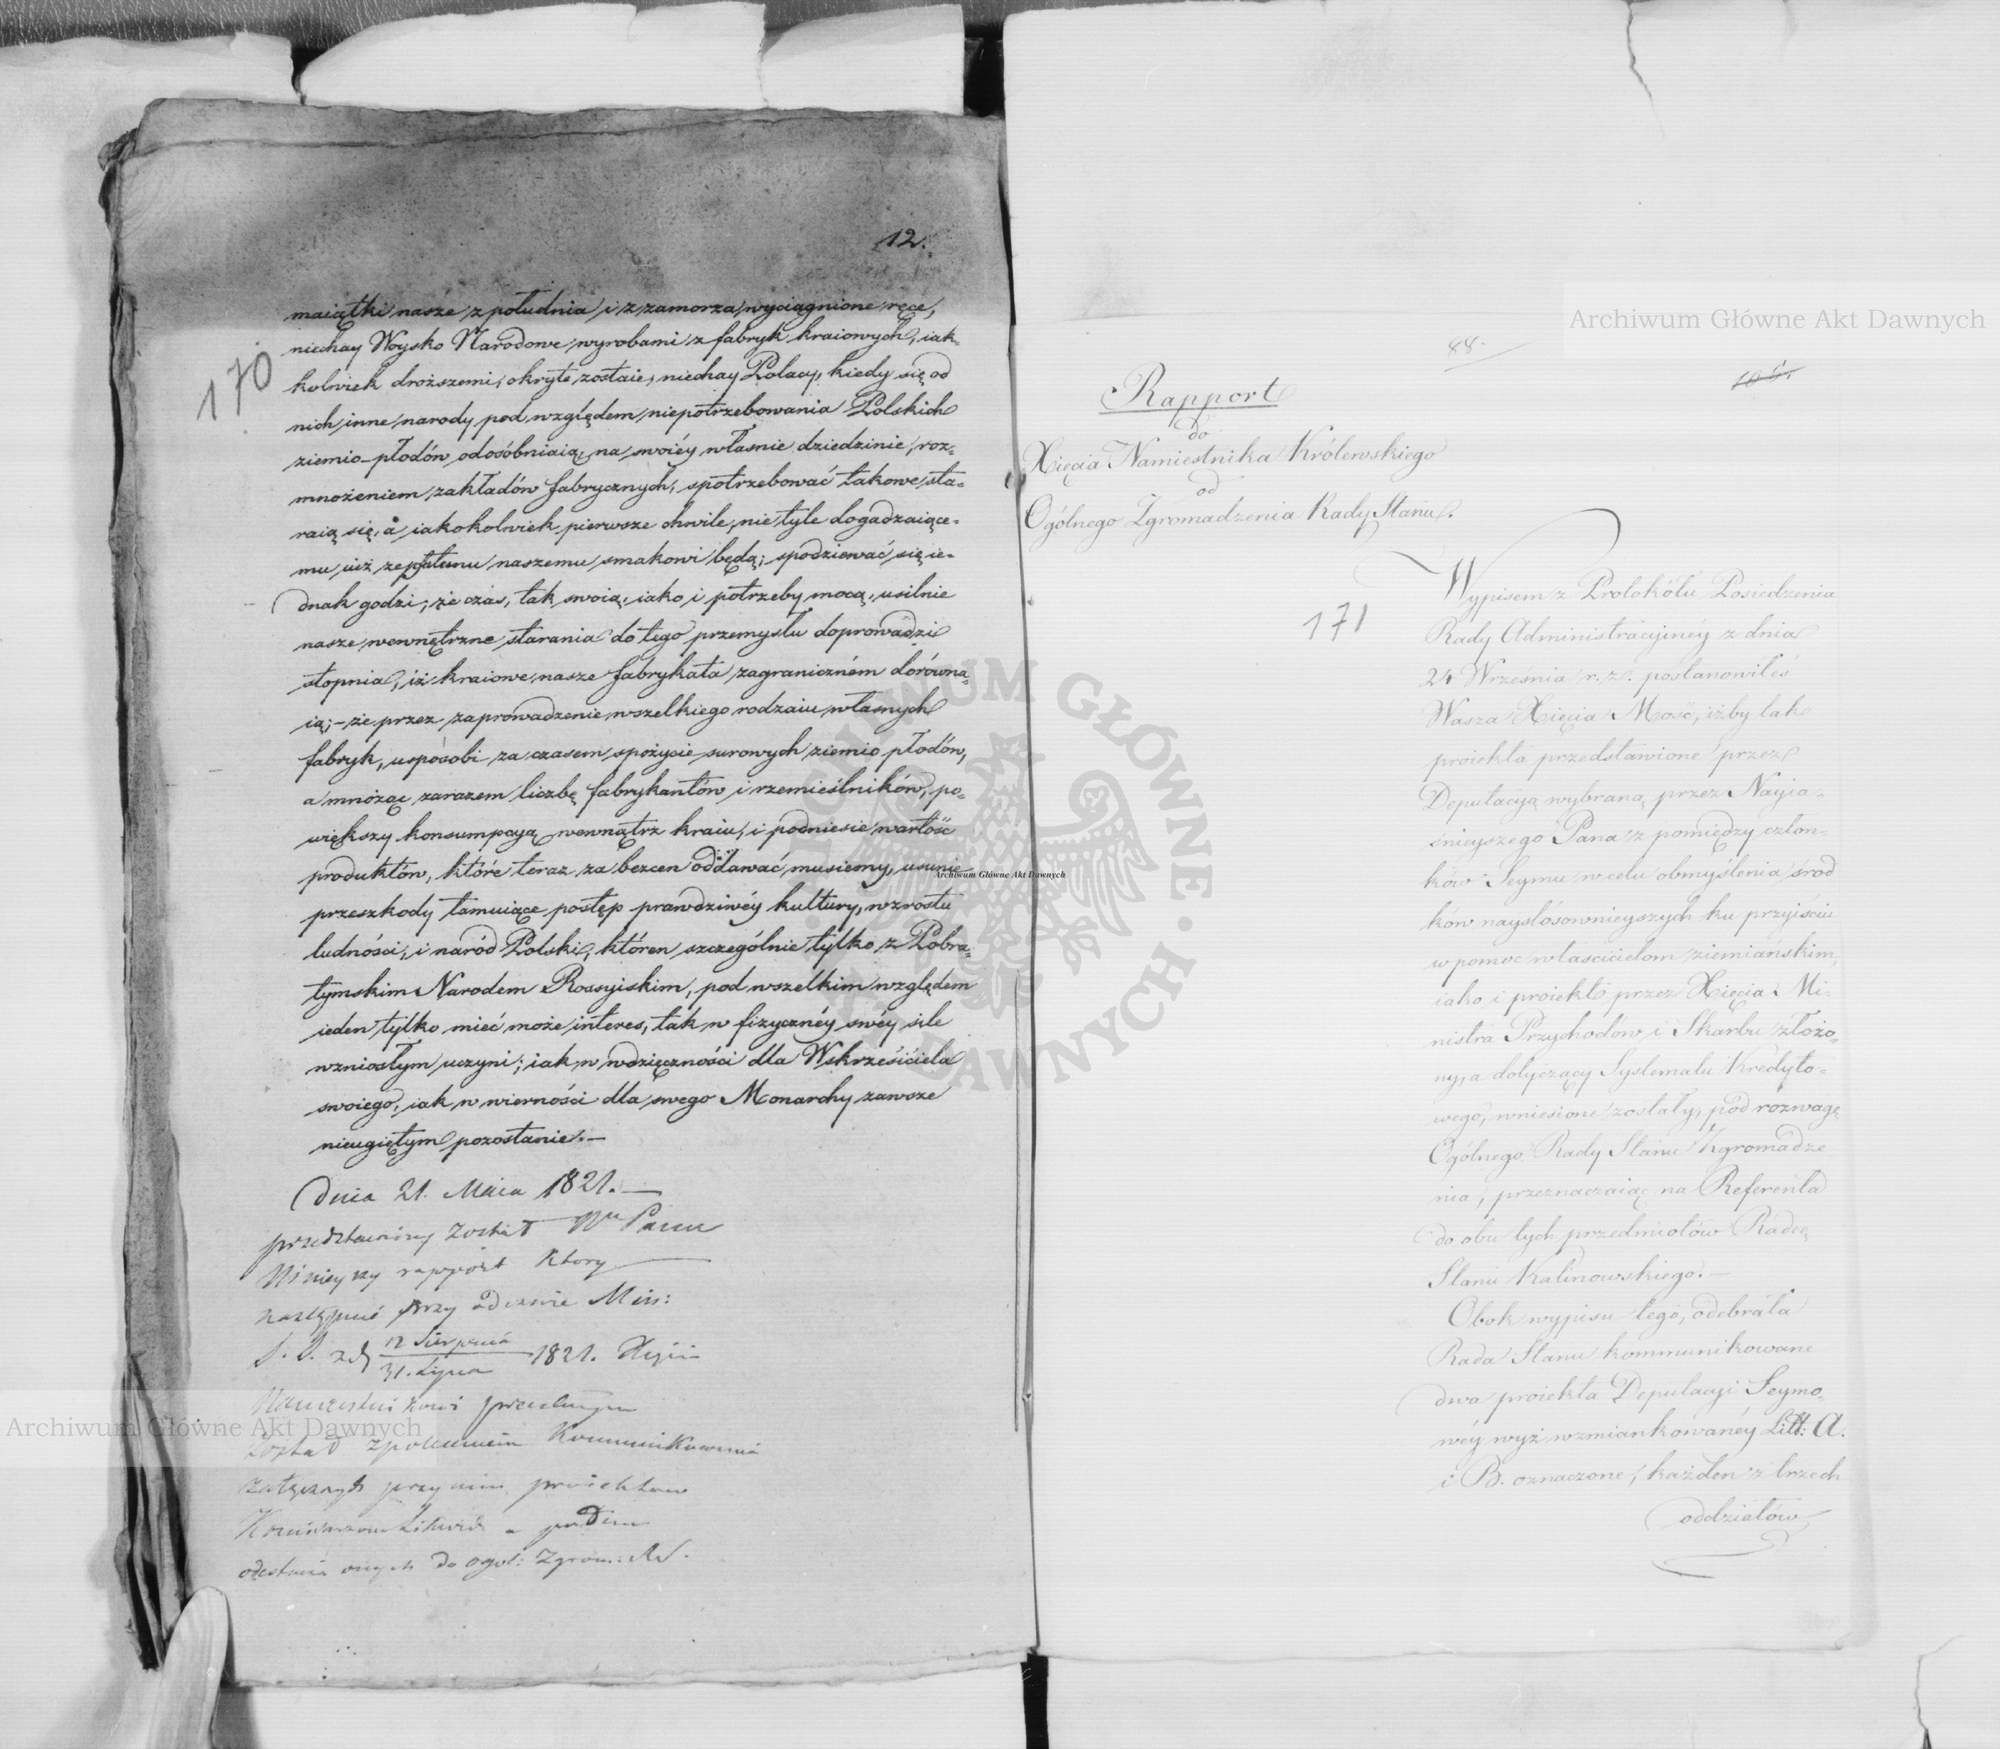 12.
170
maiątki nasze z południa i z zamorza wyciągnione ręce,
niechay Woysko Narodowe wyrobami z fabryk kraiowych, iak-
kolwiek droższemi, okryte zostaie, niechay Polacy, kiedy się od
nich inne narody pod względem niepotrzebowania Polskich
ziemio-płodów odosóbniaią, na swoiéy własnie dziedzinie, roz-
mnożeniem zakładów fabrycznych, spotrzebować takowe sta-
raią się, a iakokolwiek pierwsze chwile, nie tyle dogadzaiące-
mu iuż zepsutemu naszemu smakowi będą; spodziewać się ie-
dnak godzi, że czas, tak swoią, iako i potrzeby mocą, usilnie
nasze wewnętrzne starania do tego przemysłu doprowadzi
stopnia, iż kraiowe nasze fabrykata zagraniczném dorówna-
ią;- że przez zaprowadzenie wszelkiego rodzaiu własnych
fabryk, usposobi za czasem spożycie surowych ziemio płodów,
a mnożąc zarazem liczbę fabrykantów i rzemieślników, po-
większy konsumpcyą wewnątrz kraiu, i podniesie wartość
produktów, które teraz za bezcen oddawać musiemy, usunie
przeszkody tamuiące postęp prawdziwéy kultury, wzrostu
ludności, i naród Polski, któren szczególnie tylko z Pobra-
tymskim Narodem Rossyiskim, pod wszelkim względem
ieden tylko mieć może interes, tak w fizycznéy swéy sile
wzniosłym uczyni; iak w wdzięczności dla Wskrzesiciela
swoiego, iak w wierności dla swego Monarchy zawsze
nieugiętym pozostanie.—
Dnia 21. Maia 1821.—
przedstawiony został NPanu
Ninieyszy rapport który
następnie przy odezwie Min:
S. S. z d. 12 Sierpnia
31. Lipca 1821. Xięciu
Namiestnikowi przesłanym
został z poleceniem Kommunikowania
załączonych przy nim proiektów
a potem
odesłania onych do ogól: Zgrom: R S.
88.
106.
Rapport
do
Xięcia Namiestnika Królewskiego
od
Ogólnego Zgromadzenia Rady Stanu.
171
Wypisem z Protokółu Posiedzenia
Rady Administracyinéy z dnia
24 Września r. z. postanowiłeś
Wasza Xięcia Mość, iżby tak
proiekta przedstawione przez
Deputacyą wybraną przez Nayia-
śnieyszego Pana z pomiędzy człon-
ków Seymu w celu obmyślenia środ
ków naystósownieyszych ku przyiściu
w pomoc właścicielom ziemiańskim,
iako i proiekt przez Xięcia Mi-
nistra Przychodów i Skarbu złożo-
ny, a dotyczący Systematu Kredyto-
wego, wniesione zostały, pod rozwagę
Ogólnego Rady Stanu Zgromadze
nia, przeznaczaiąc na Referenta
do obu tych przedmiotów Radcę
Stanu Kalinowskiego.—
Obok wypisu tego, odebrała
Rada Stanu kommunikowane
dwa proiekta Deputacyi Seymo-
wéy wyż wzmiankowanéy Litt: A.
i B. oznaczone, każden z trzech
oddziałów
Archiwum Główne Akt Dawnych
Archiwum Główne Akt Dawnych
Archiwum Główne Akt Dawnych
ARCHIWUM GŁÓWNE · AKT DAWNYCH ·